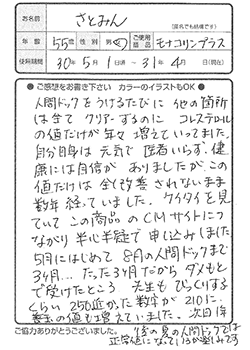 お名前
さとみん
(匿名でも結構です)
年齢 55歳 性別 男・女 ご使用商品 モナコリンプラス
使用期間 30年5月1日頃〜31年4月 日(現在)
●ご感想をお書き下さい カラーのイラストもOK●
人間ドックをうけるたびに 他の箇所
は全て クリアーするのに コレステロール
の値だけが年々 増えていってました。
自分自身は 元気で 医者いらず、健
康には自信が ありましたが、この
値だけは 全く改善されないまま
数年 経っていました。ケイタイを見
ていて この商品のCMサイトにつ
ながり 半心半疑で 申し込みました
5月にはじめて 8月の人間ドックまで
3ヶ月... たった3ヶ月だから ダメもと
で受けたところ 先生も びっくりする
くらい 250近かった数字が 210に、
善玉の値も増えていました。次回
1年後の夏の人間ドックでは
正常値になっているか楽しみです
ご協力ありがとうございました。